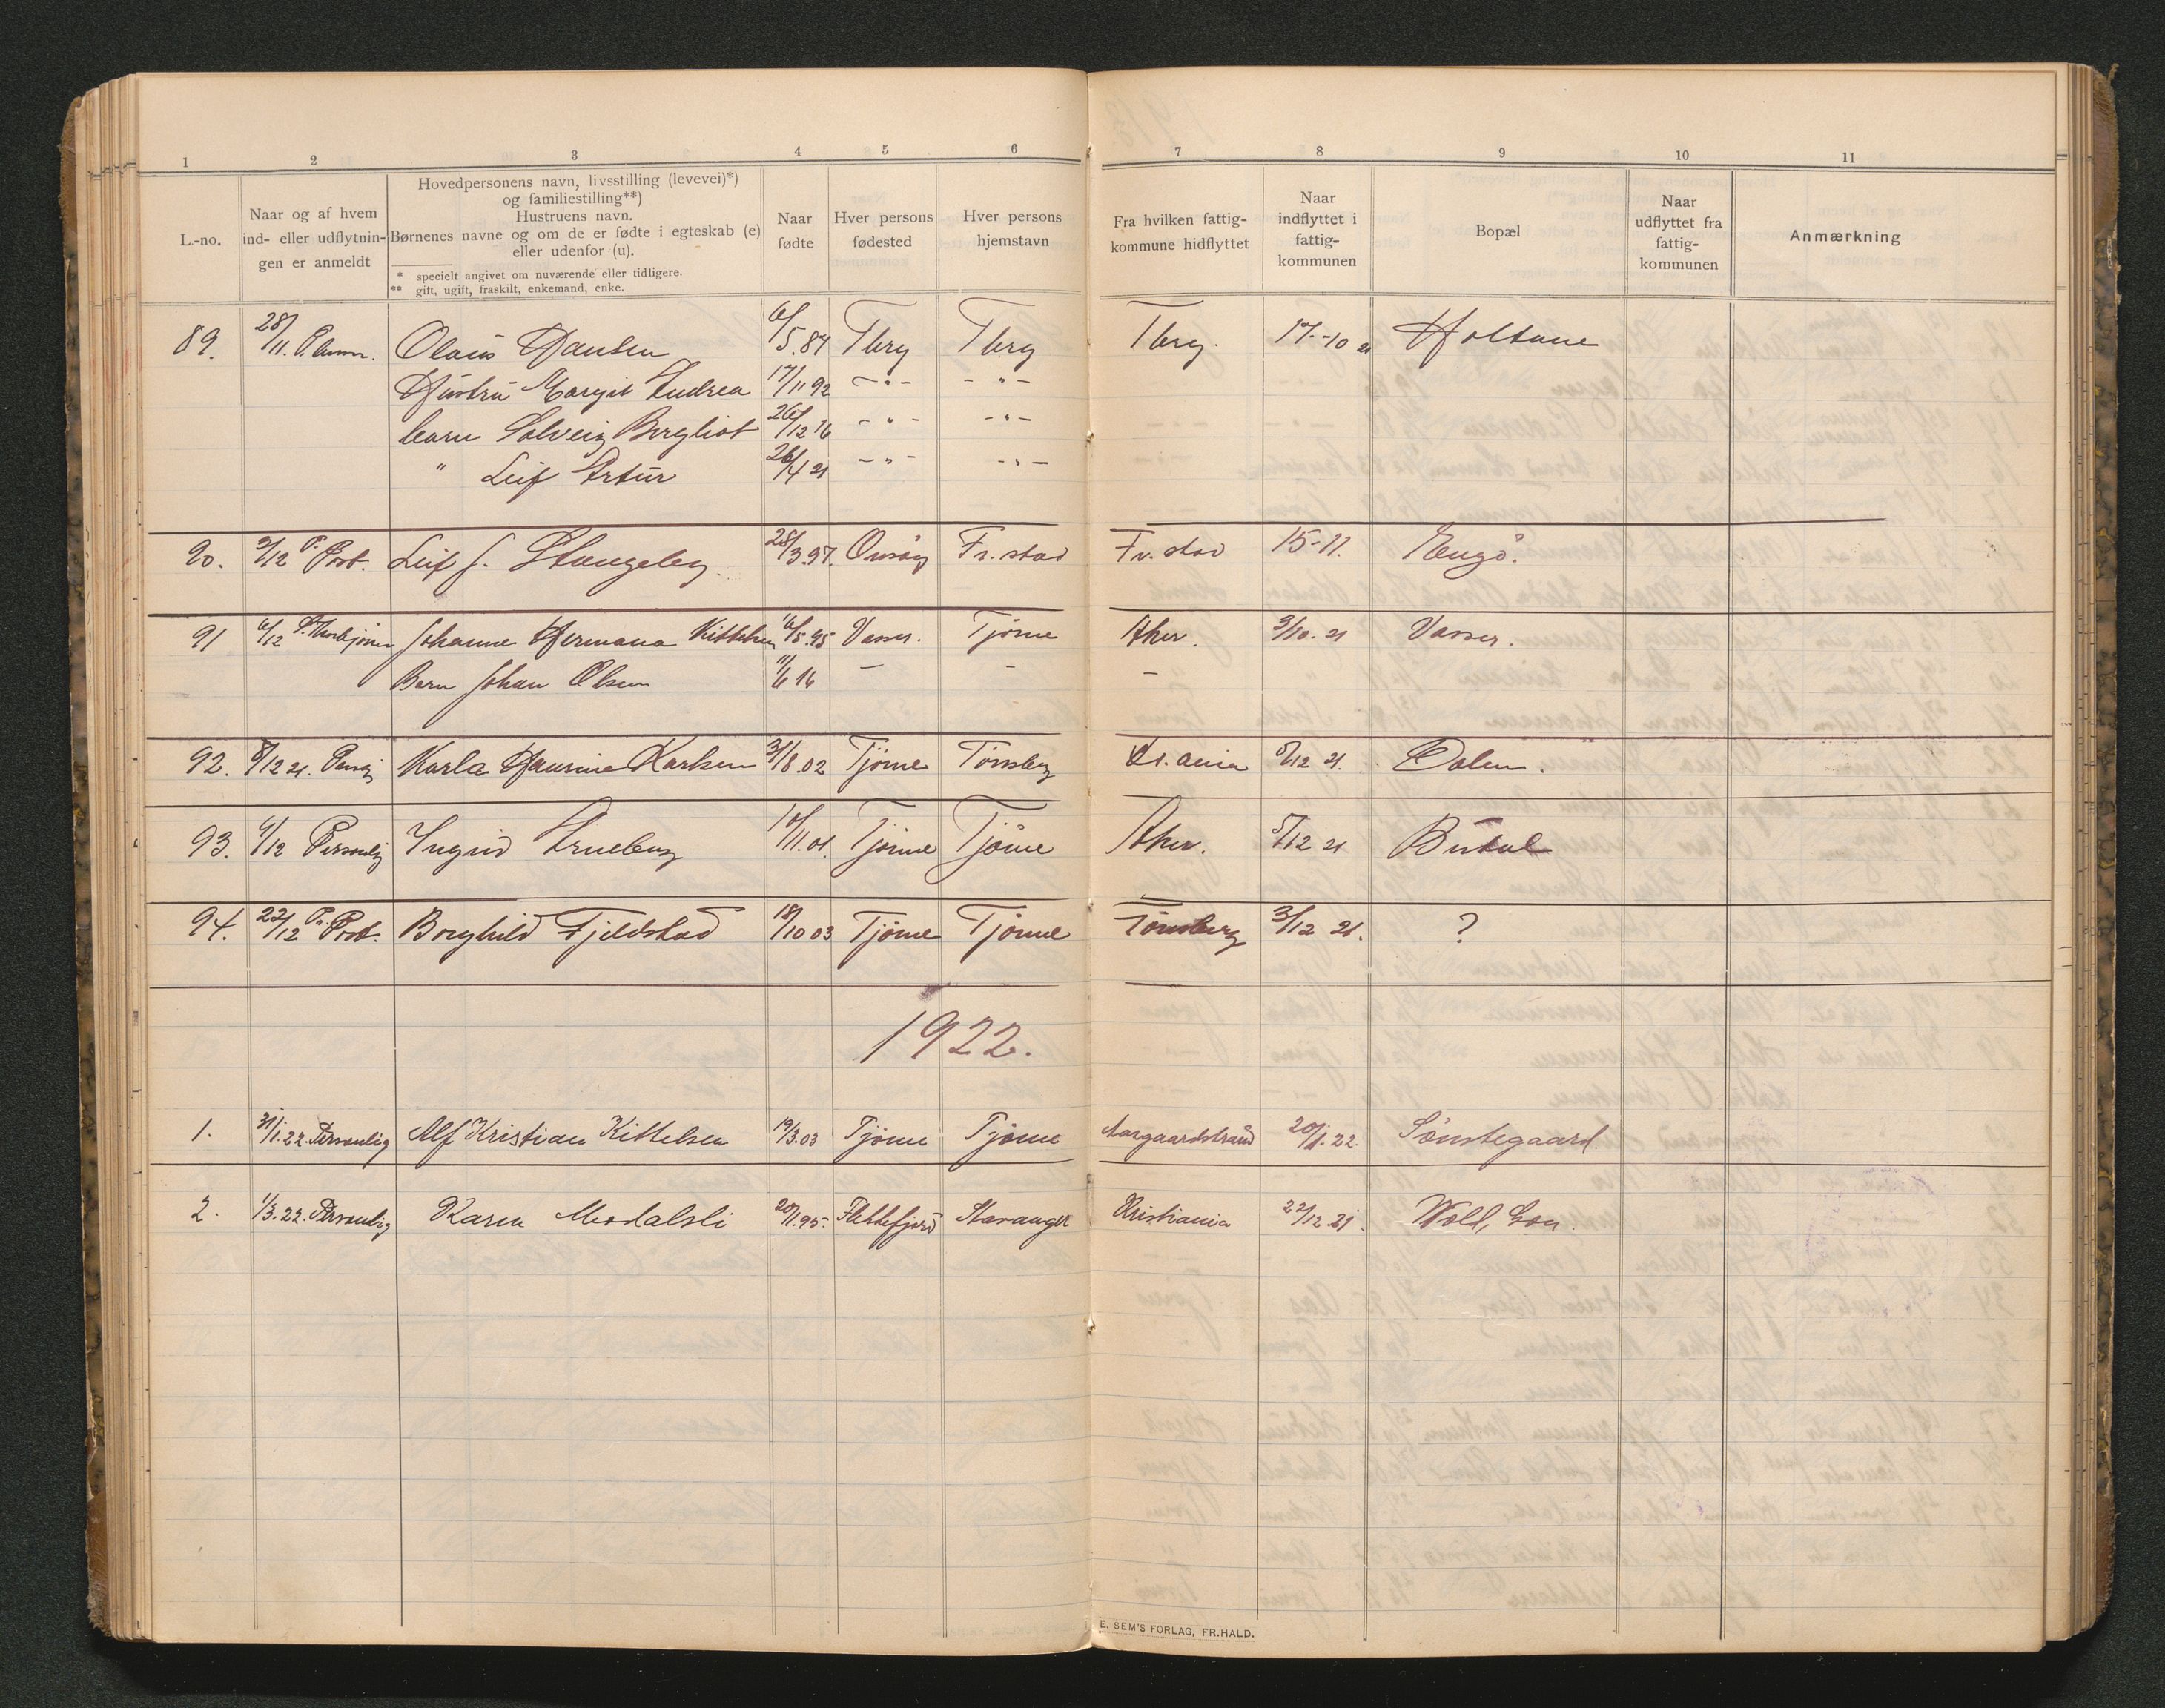 1 2 3 4 5 6 7 8 9 10 11
L.-no.
Naar og af hvem
ind- eller udflytnin-
gen er anmeldt
Hovedpersonens navn, livsstilling (levevei)*)
og familiestilling**)
Hustruens navn.
Børnenes navne og om de er fødte i egteskab (e)
eller udenfor (u).
* specielt angivet om nuværende eller tidligere.
** gift, ugift, fraskilt, enkemand, enke.
Naar
fødte
Hver persons
fødested
Hver persons
hjemstavn
Fra hvilken fattig-
kommune hidflyttet
Naar
indflyttet i
fattig-
kommunen
Bopæl
Naar
udflyttet fra
fattig-
kommunen
Anmærkning
89. 28/11. Olaus Hansen 6/5.84 Tbrg Tbrg Tbrg. 17.-10 21 Holtane
Hustru Margit Andrea 17/11 92 - " - - " -
barn Solveig Bergliot 26/12 16 - " - - " -
" Leif Artur 26/4 21 - " - - " -
90. 3/12 P. Post. Leif J. Stangeby. 28/3.97. Onsøy Fr. stad Fr. stad 15-11. Engø.
91 6/12 Johanne Hermana Kittelsen 16/5.95 Vasser. Tjøme Aker. 3/10. 21 Vasser.
Barn Johan Olsen 11/6 16 - - -
92. 8/12 21. Karla Haurine Karlsen 31/8.02 Tjøme Tønsberg Kr.ania 5/12 21. Dalen.
93. 9/12 Personlig Ingrid Arneberg 10/11.01. Tjøme Tjøme Aker. 5/12 21 Budal
94. 22/12 P. Post. Borghild Fjeldstad 18/10 03 Tjøme Tjøme Tønsberg 3/12 21. ?
1922.
1. 31/1.22. Personlig Alf Kristian Kittelsen 19/3.03 Tjøme Tjøme Aasgaardstrand 20/1.22. Sønstegaard.
2. 1/3.22. Personlig Karen Modalsli 20/1.95 Flekkefjord Stavanger Kristiania 22/12 21. Wold,
E. SEM'S FORLAG, FR.HALD.